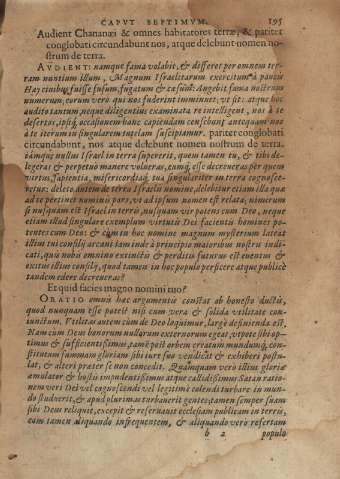 CAPVT SEPTIMVM. 195
Audient Chananæi & omnes habitatores terræ, & pariter
conglobati circundabunt nos, atque delebunt nomen no-
strum de terra.
AVDIENT: namque fama volabit, & differet per omnem ter-
ram nuntium illum, Magnum Israelitarum exercitum à paucis
Hay ciuibus fuisse fusum, fugatum & cæsum. Angebit fama nostrorum
numerum, eorum verò qui nos fuderint imminuet, vt sit: atque hoc
audito tantum, neque diligentius examinata re intelligent, nos à te
desertos, ipsíque occasionem hanc capiendam censebunt antiquam nos
à te iterum in singularem tutelam suscipiamur. pariter conglobati
circundabunt, nos atque delebunt nomen nostrum de terra.
námque nullus Israel in terra supererit, quem tamen tu, & tibi de-
legeras & perpetuò manere volueras, cumque, esse decreueras per quem
virtus, sapientia, misericordiáque tua singulariter in terra cognosce-
retur: deleto autem de terra Israelis nomine, delebitur etiam illa quæ
ad te pertinet nominis pars, vt ad ipsum nomen est relata, nimirum
si nusquam est Israel in terris, nusquam vir potens cum Deo, neque
etiam illud singulare exemplum virtutis Dei facientis homines po-
tentes cum Deo: & cum in hoc nomine magnum mysterium lateat
illius tui consilij arcani iam inde à principio maioribus nostris indi-
cati, quis nobis omnino extinctis & perditis futurus est euentus &
exitus illius consilij, quod tamen in hoc populo perficere atque publicè
tandem edere decreueras?
Et quid facies magno nomini tuo?
ORATIO omnis hæc argumentis constat ab honesto ductis,
quod nunquam esse potest nisi cum vera & solida vtilitate con-
iunctum. Vtilitas autem cùm de Deo loquimur, largè definienda est,
Nam cùm Deus bonorum nullorum externorum egeat, vtpote sibi op-
timus & sufficientissimus, tamen post orbem creatum mundúmque, con-
stitutum summam gloriam sibi iure suo vendicat & exhiberi postu-
lat, & alteri præter se non concedit. Quamquam verò illius gloriæ
æmulator & hostis impudentissimus atque callidissimus Satan ratio-
nem veri Dei vel cognoscendi vel legitimè colendi turbare in mun-
do studuerit, & apud plurimas turbauerit gentes, tamen semper suam
sibi Deus reliquit, excepit & reseruauit ecclesiam publicam in terris,
eam tamen aliquando infrequentem, & aliquando verò refertam
b 2 populo